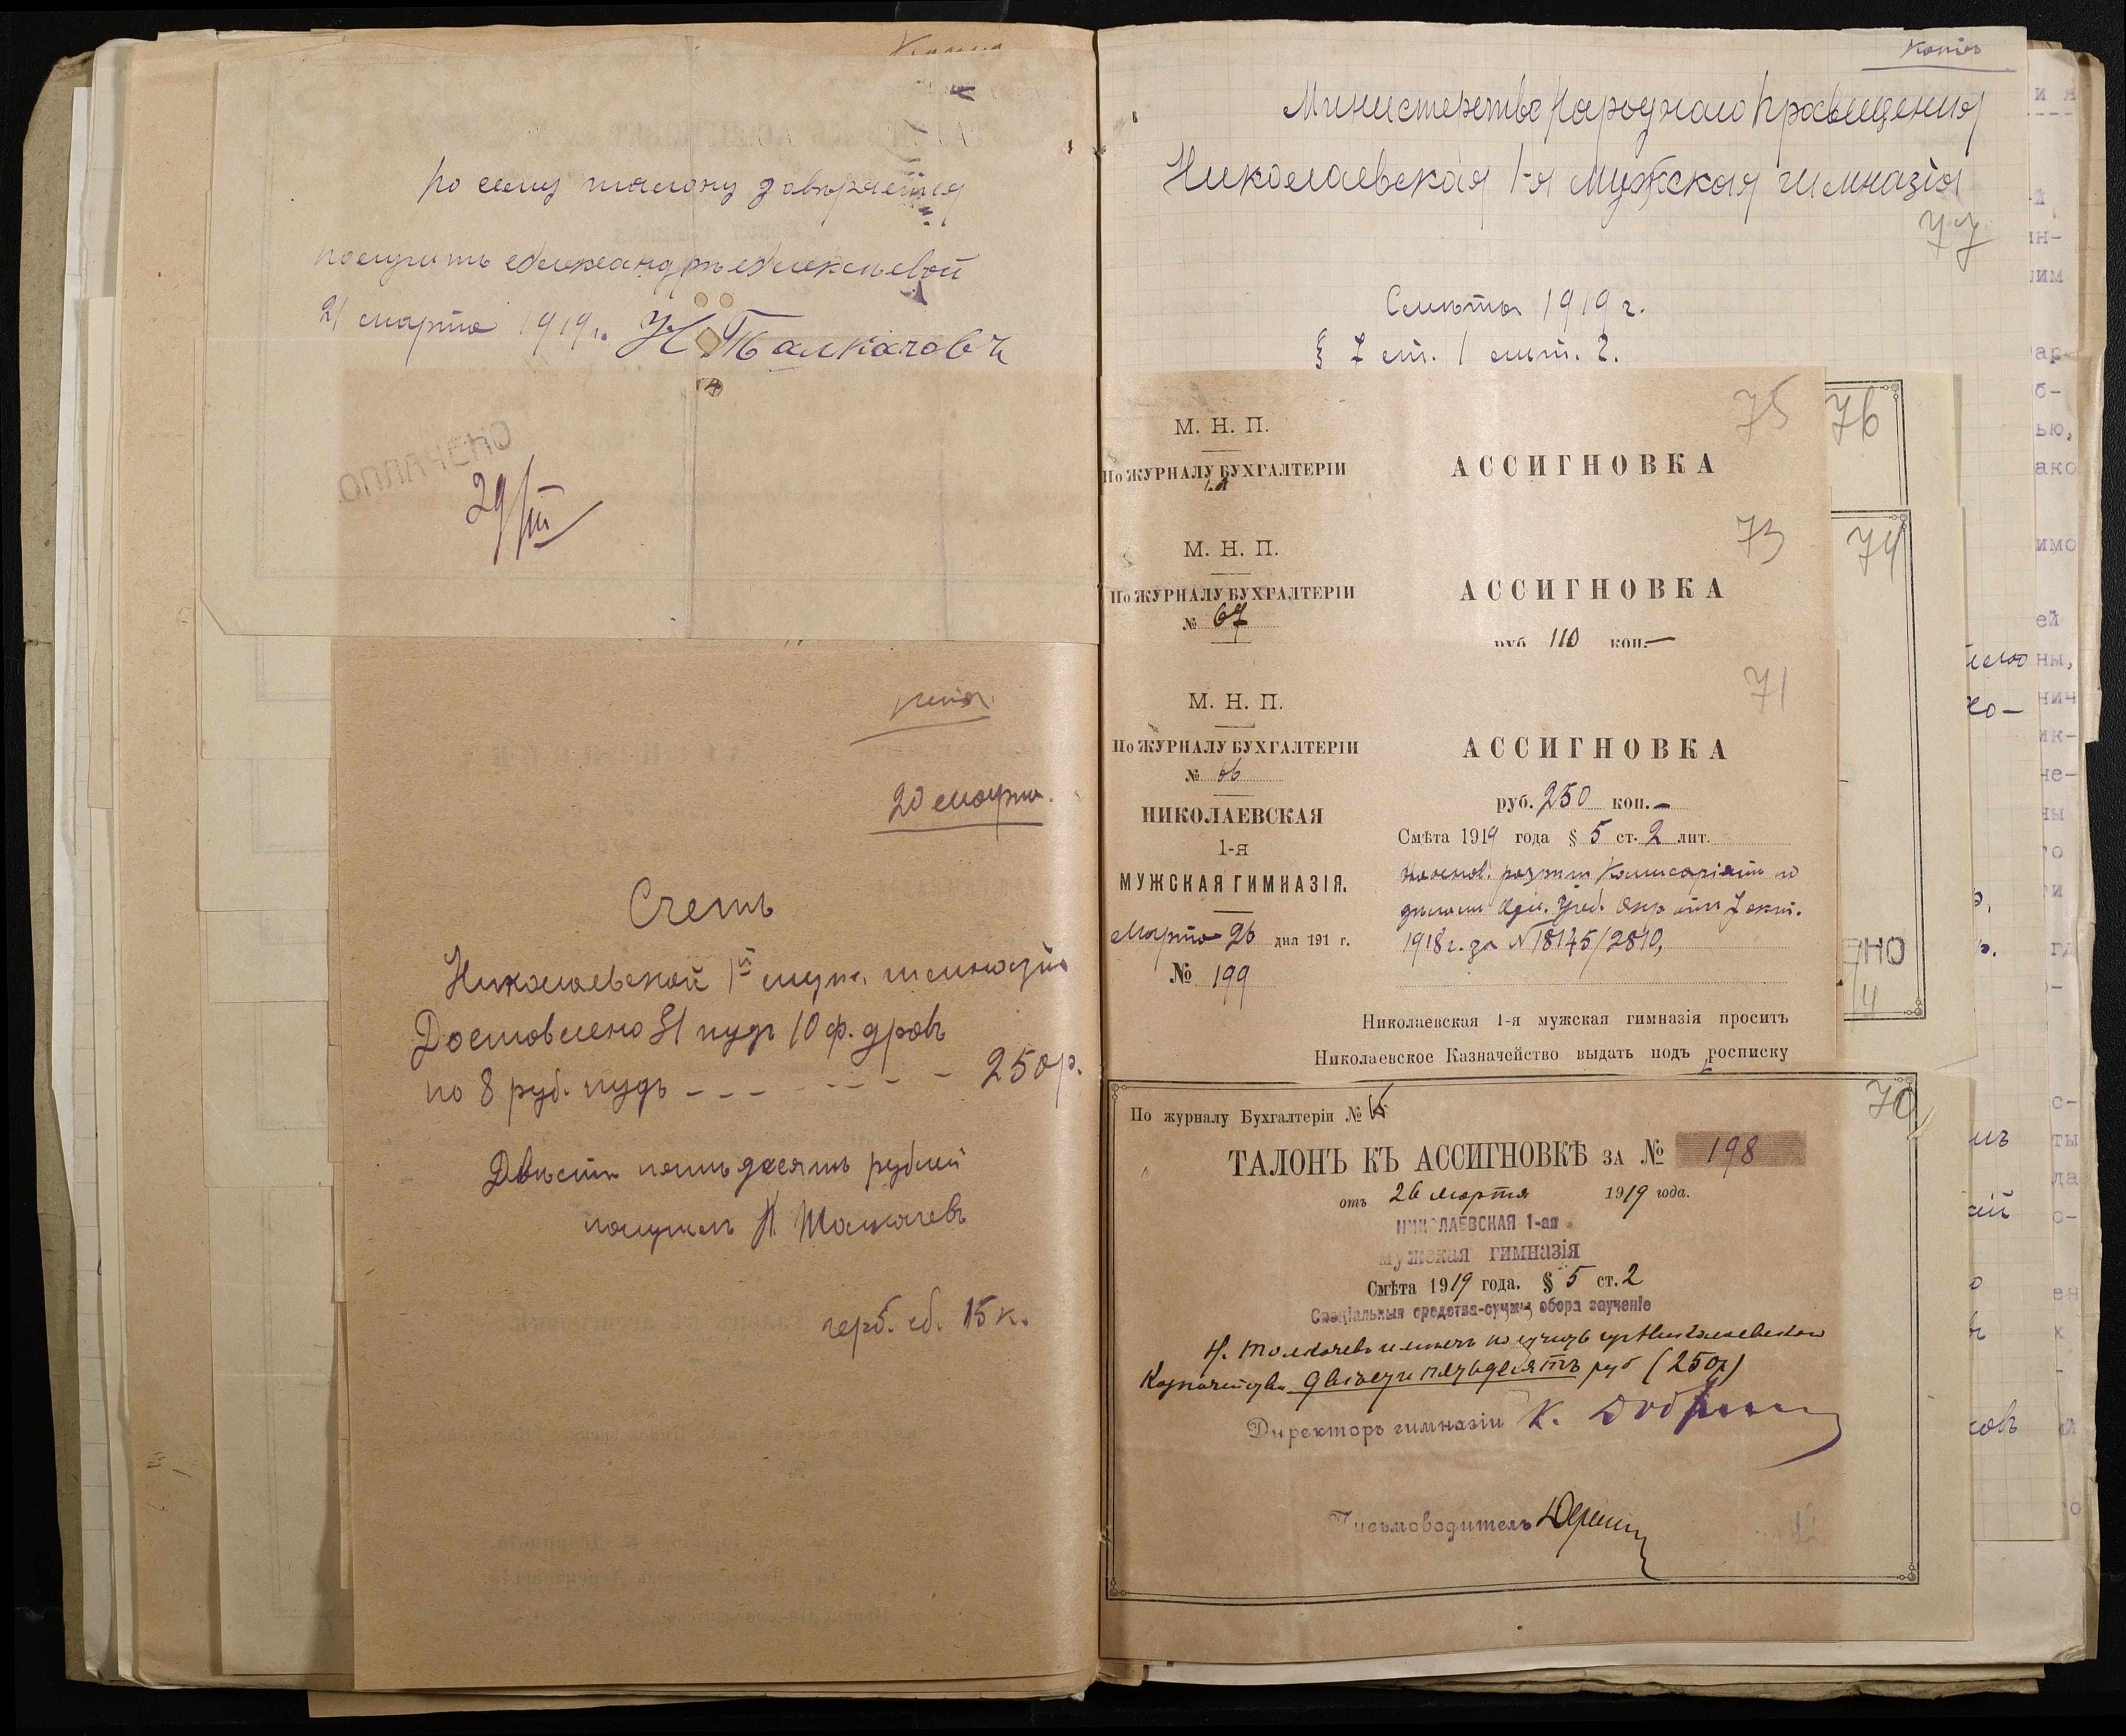 По сему талону довѣряется
получить Александрѣ Алексѣевой
21 марта 1919 г. Н Талкачовъ
ОПЛАЧЕНО
29/III
копія
20 марта.
Счетъ
Николаевской 1й муж. гимназіи
Доставлено 31 пудъ 10 ф. дровъ
по 8 руб. пудъ - - - - - - - - 250 р.
Двѣсти пятьдесятъ рублей
получилъ Н Толкачевъ
герб. сб. 15 к.
копія
Министерство Народнаго Просвещения
Николаевская 1-я мужская гимназія
77
Смѣта 1919 г.
§ 7 ст. 1 лит. 2.
75
М. Н. П.
По ЖУРНАЛУ БУХГАЛТЕРІИ
АССИГНОВКА
76
73
М. Н. П.
По ЖУРНАЛУ БУХГАЛТЕРІИ
№ 67
АССИГНОВКА
руб 110 коп.—
74
71
М. Н. П.
По ЖУРНАЛУ БУХГАЛТЕРІИ
№ 66
НИКОЛАЕВСКАЯ
1-я
МУЖСКАЯ ГИМНАЗІЯ.
Марта 26 дня 191 г.
№ 199
АССИГНОВКА
руб. 250 коп. —
Смѣта 1919 года § 5 ст. 2 лит.
На основ. разрѣш Коммисаріата по
дѣламъ Одес. Учеб. Окр отъ 7 окт.
1918 г. за № 18145/2810,
Николаевская 1-я мужская гимназія проситъ
Николаевское Казначейство выдать подъ росписку
ЕНО
70
По журналу Бухгалтеріи №
ТАЛОНЪ КЪ АССИГНОВКѢ ЗА № 198
отъ 26 марта 1919 года.
НИКОЛАЕВСКАЯ 1-ая
мужская гимназія
Смѣта 1919 года. § 5 ст. 2
Спеціальныя средства-суммы сбора за ученіе
Н. Толкачевъ имѣетъ получить изъ Николаевскаго
Казначейства двѣсти пятьдесятъ руб (250 р)
Директоръ гимназіи К.
Письмоводитель